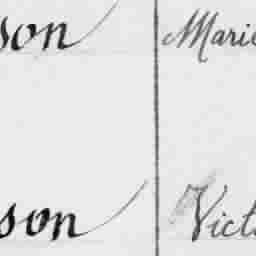 son Marie
son Vict